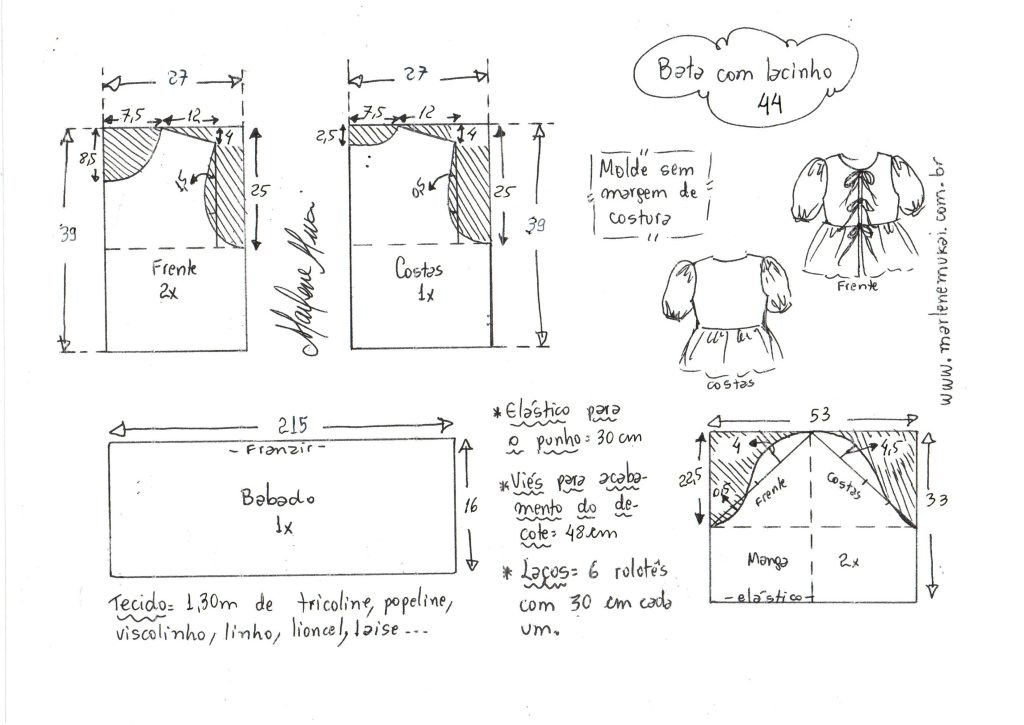 Bata com lacinho
44
27
7,5
12
4
8,5
25
39
Frente
2x
Marlene Mukai
27
7,5
12
2,5
4
25
39
Costas
1x
Molde sem
margem de
costura
Frente
costas
www.marlenemukai.com.br
215
- Franzir -
Babado
1x
16
Tecido= 1,30m de tricoline, popeline,
viscolinho, linho, lioncel, laise...
* Elástico para
o punho= 30 cm
* Viés para acaba-
mento do de-
cote= 48 cm
* Laços= 6 rolotês
com 30 cm cada
um.
53
4
4,5
22,5
0,5
Frente
Costas
33
Manga 2x
- elástico -